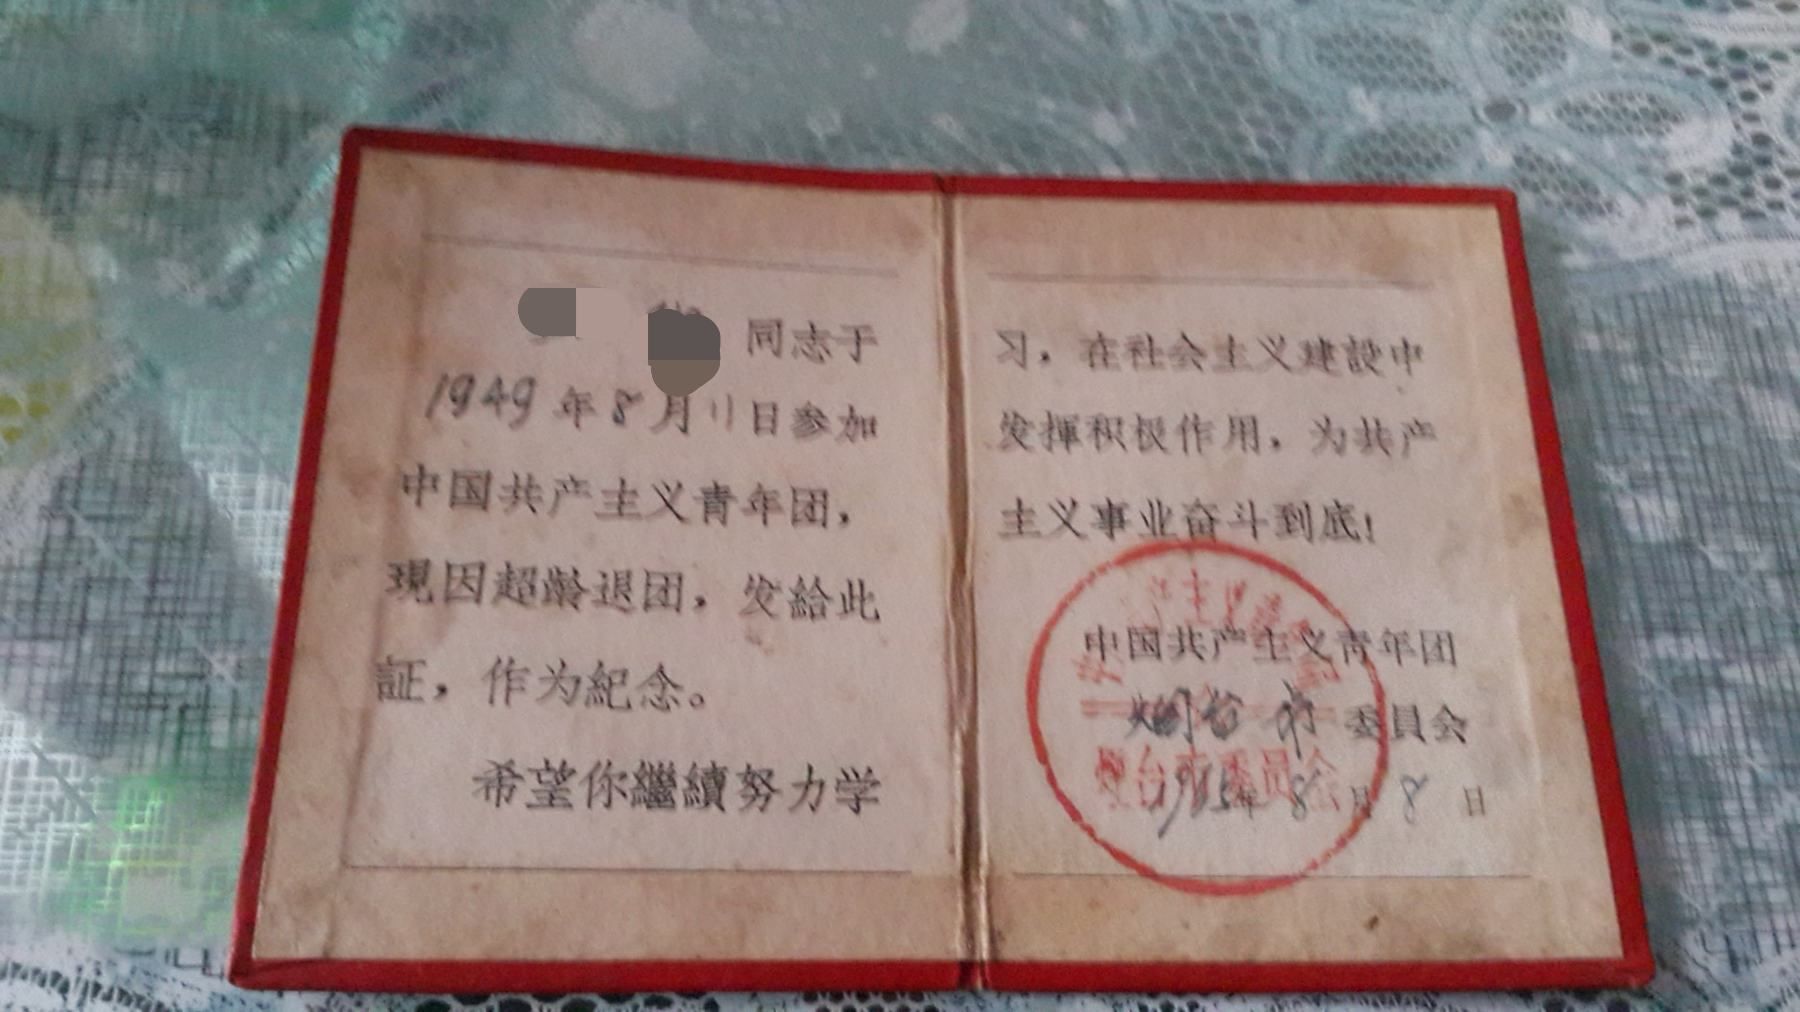 同志于
1949年8月11日参加
中国共产主义青年团，
現因超龄退团，发給此
証，作为紀念。
希望你繼續努力学
习，在社会主义建設中
发揮积极作用，为共产
主义事业奋斗到底！
中国共产主义青年团
烟台市委員会
年8月8日
烟台市委员会